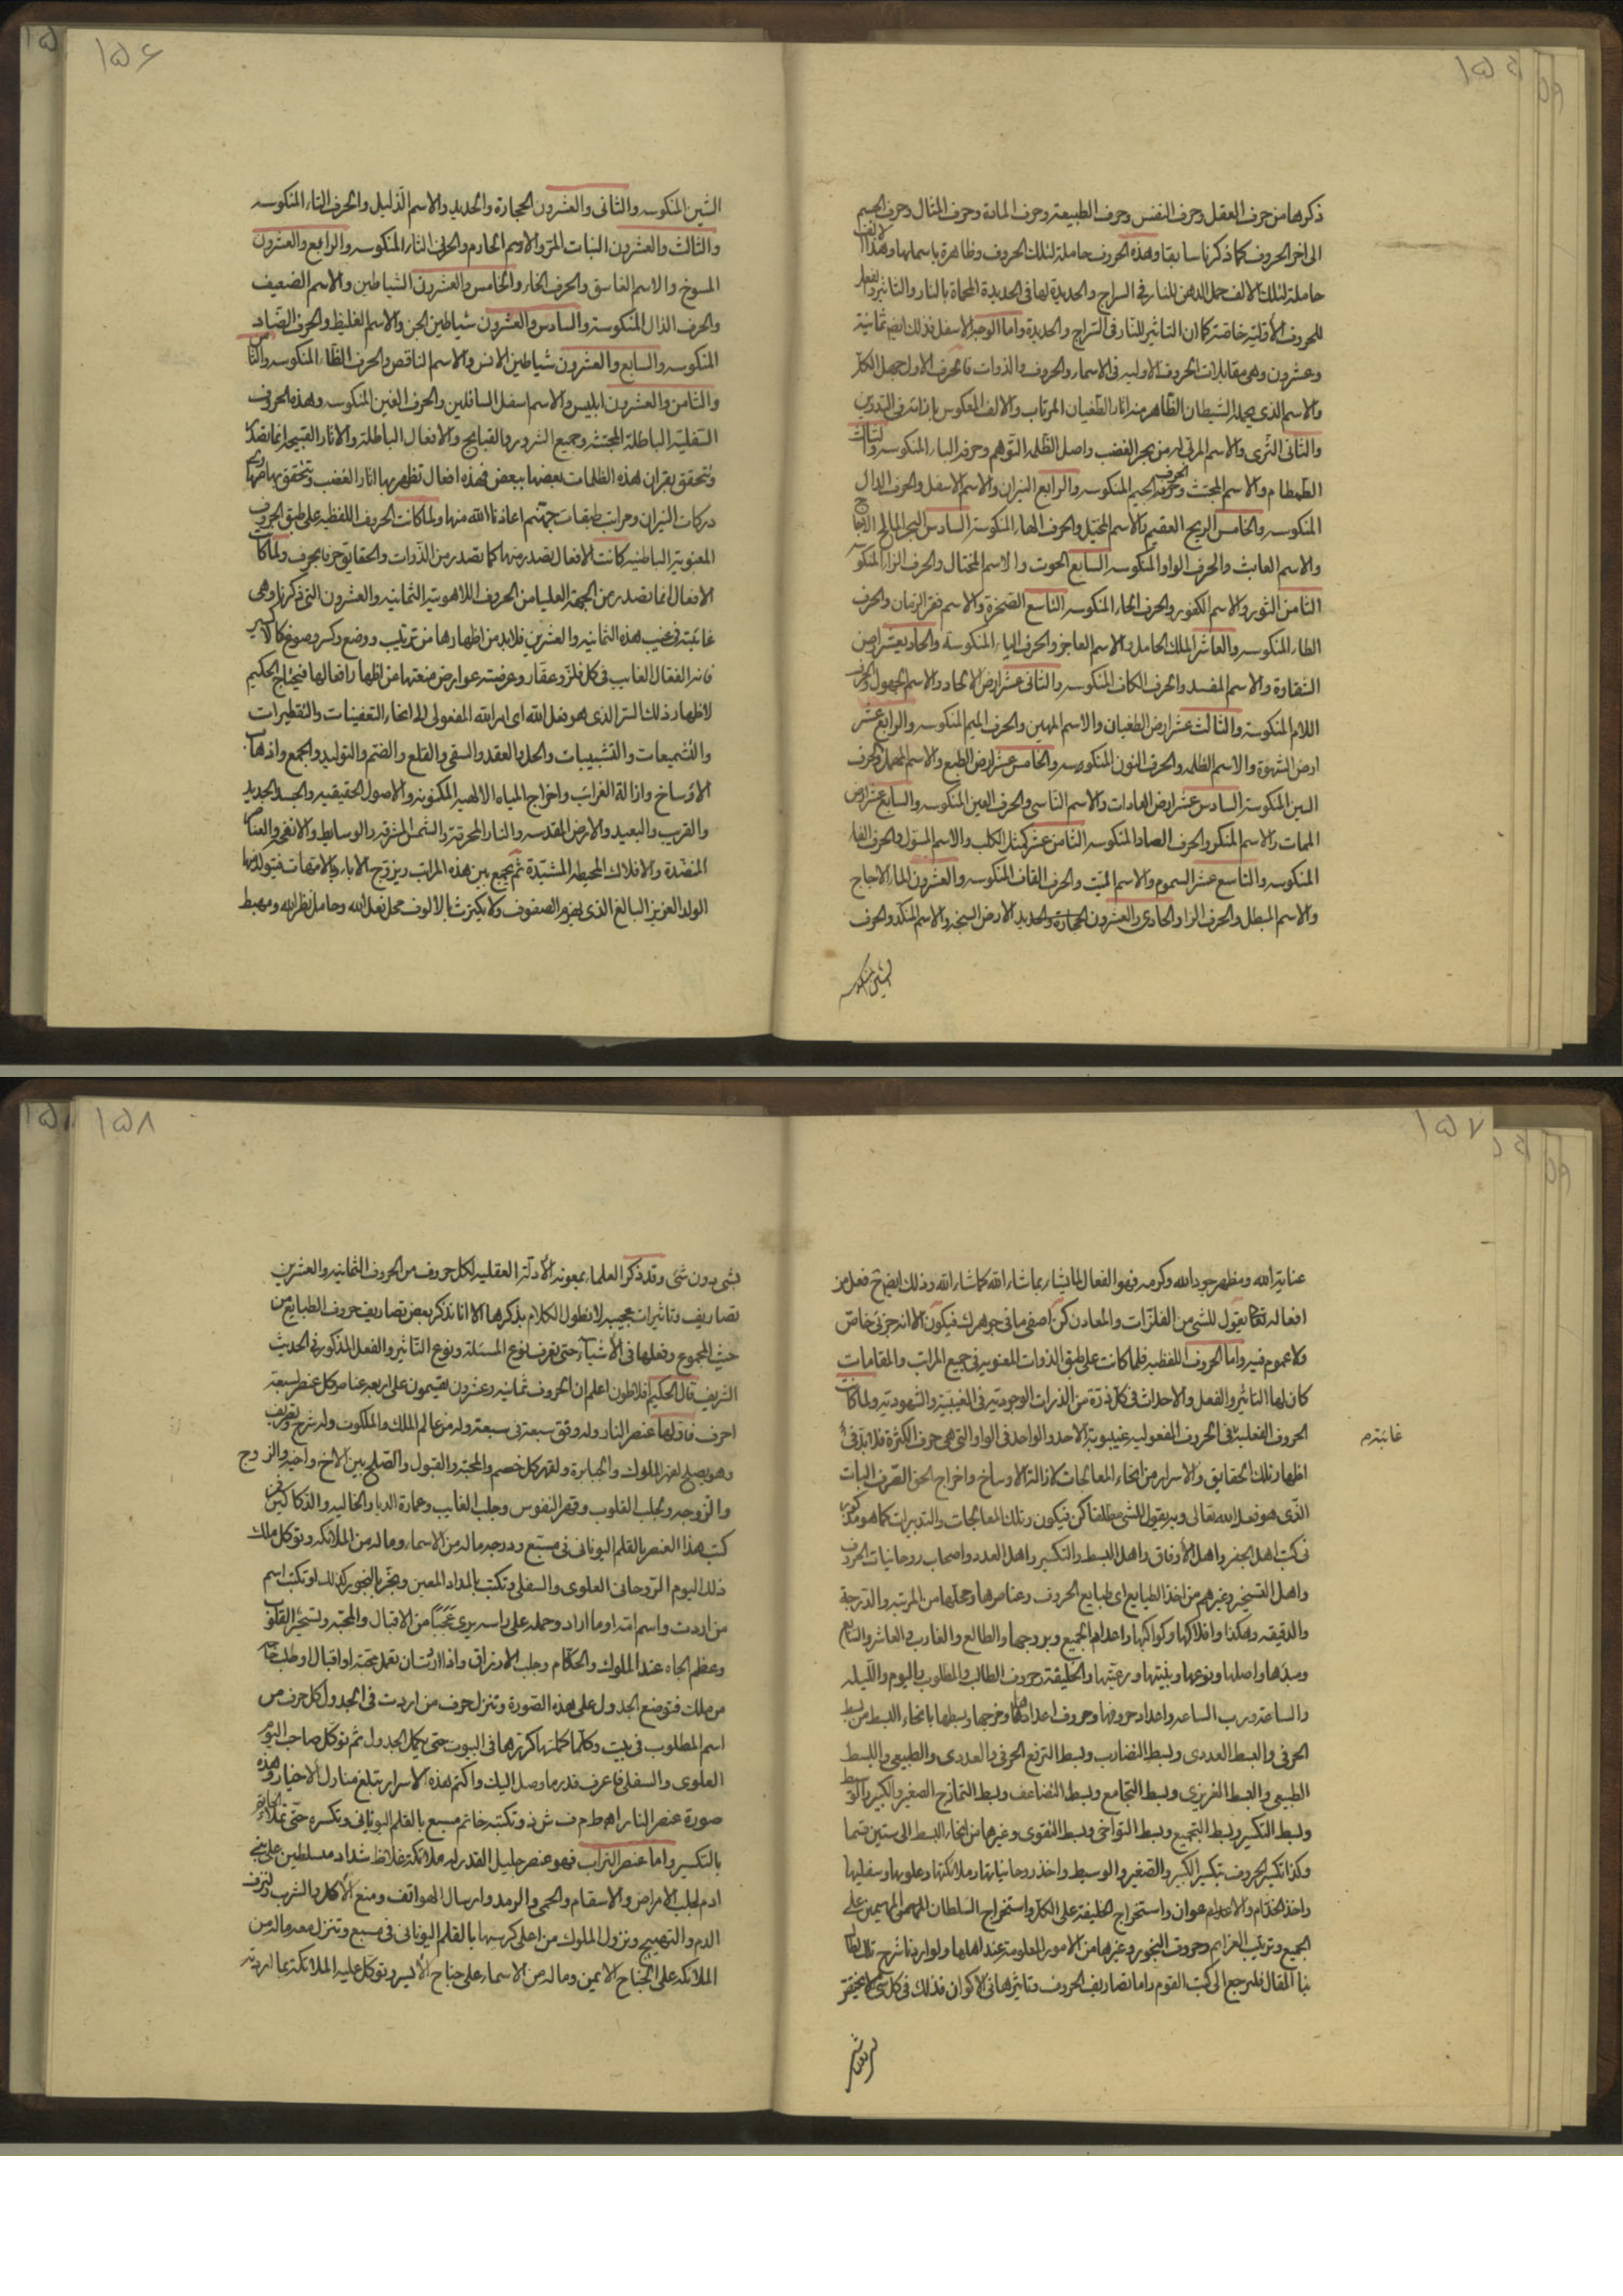 ١٥٥
ذكرها من حرف العقل وحرف النفس وحرف الطبيعة وحرف المادة وحرف المثال وحرف الجسم
الى اخر الحروف كما ذكرنا سابقا وهذه الحروف حاملة لتلك الحروف وظاهرة باسمائها وهذا الالف
حاملة لتلك الالف حمل الدهن للنار في السراج والحديدة لها في الحديدة المحماة بالنار والتاثير والفعل
للحروف الأولية خاصة كما ان التاثير للنار في السراج والحديدة واما الوجه الاسفل فذلك ايضا ثمانية
وعشرون وهي مقابلات الحروف الاولية في الاسماء والحروف والذوات فالحرف الاول جهل الكل
والاسم الذي يحمله الشيطان الظاهر منه اثار الطغيان المرتاب والالف المعكوس بازائه في التدوين
والثاني الثرى والاسم المربي له من بحر الغضب واصل الظلمة التوهم وحرفه الباء المنكوسة والثالث
الطمطام والاسم المجتث وحرفه الجيم المنكوسه والرابع النيران والاسم الاسفل والحرف الدال
المنكوسه والخامس الريح العقيم والاسم المختل والحرف الهاء المنكوسة السادس البحر المالح الاجاج
والاسم العابث والحرف الواو المنكوسه السابع الحوت والاسم المختال والحرف الزاء المنكوسه
الثامن الثور والاسم الكفور والحرف الحاء المنكوسه التاسع الصخرة والاسم فقر الزمان والحرف
الطاء المنكوسه والعاشر الملك الحامل والاسم العاجز والحرف الياء المنكوسة والحاديعشر ارض
الشقاوة والاسم المفسد والحرف الكاف المنكوسه والثاني عشر ارض الالحاد والاسم الجهول والحرف
اللام المنكوسة والثالث عشر ارض الطغيان والاسم المهين والحرف الميم المنكوسه والرابع عشر
ارض الشهوة والاسم الظلمه والحرف النون المنكوسه والخامس عشر ارض الطبع والاسم المهمل والحرف
السين المنكوسة السادس عشر ارض العادات والاسم الناسي والحرف العين المنكوسه والسابع عشر ارض
الممات والاسم المنكر والحرف الصاد المنكوسه الثامن عشر كمثل الكلب والاسم المسول والحرف الفاء
المنكوسه والتاسع عشر السموم والاسم الميت والحرف القاف المنكوسه والعشرون الماء الاجاج
والاسم المبطل والحرف الراء والحادي والعشرون الحجارة والحديد الارض السبخه والاسم المنكد والحرف
الشين المنكوسه
١٥٦
الشين المنكوسه والثاني والعشرون الحجارة والحديد والاسم الذليل والحرف التاء المنكوسه
والثالث والعشرون النبات المر والاسم الحادم والحرف الثاء المنكوسه والرابع والعشرون
المسوخ والاسم الفاسق والحرف الخاء والخامس والعشرون الشياطين والاسم الضعيف
والحرف الذال المنكوسة والسادس والعشرون شياطين الجن والاسم الغليظ والحرف الضاد
المنكوسه والسابع والعشرون شياطين الانس والاسم الناقص والحرف الظاء المنكوسه
والثامن والعشرون ابليس والاسم اسفل السافلين والحرف الغين المنكوسه وهذه الحروف
السفلية الباطلة المجتثة وجميع الشرور والقبايح والافعال الباطلة والاثار القبيحة انما تصدر
وتتحقق بقران هذه الظلمات بعضها ببعض فهذه افعال تظهر بها اثار الغضب وتتحقق بها
دركات النيران ومراتب طبقات جهنم اعاذنا الله منها ولما كانت الحروف اللفظية على طبق الحروف
المعنوية الباطنيه كانت الافعال تصدر منها كما تصدر من الذوات والحقايق حرفا بحرف ولما كانت
الافعال انما تصدر من الجهة العليا من الحروف اللاهوتية الثمانيه والعشرون التي ذكرنا وهي
غائبة في غيب هذه الثمانيه والعشرين فلابد من اظهارها من ترتيب ووضع وكسر وصوغ كالاكسير
فانه الفعال الغايب في كل فلز وعقار وعرضته عوارض منعتها عن اظهار افعالها فيحتاج الحكيم
لاظهار ذلك السر الذي هو فعل الله اى امر الله المفعولي الى انحاء التعفينات والتقطيرات
والتشميعات والتشبيبات والحل والعقد والسقي والقلع والضم والتوليد والجمع واذهاب
الاوساخ وازالة الغرائب واخراج المياه الالهيه المكنونة والاصول الحقيقيه والجسد الجديد
والقريب والبعيد والارض المقدسه والنار المحرقة والشمس المشرقه والوسايط والانفحه والعناصر
المنضدة والافلاك المحيطة المشيدة ثم يجمع بين هذه المراتب ويزوج الاباء بالامهات فيتولد منها
الولد العزيز البالغ الذي يهزم الصفوف ولا يكترث بالالوف محل فعل الله وحامل نظر الله ومهبط
١٥٧
عناية الله ومظهر جود الله وكرمه فهو الفعال لما يشاء بما شاء الله كما شاء الله وذلك ايضا فعل من
افعاله تعالى يقول للشئ من الفلزات والمعادن كن اصفى ما في جوهرك فيكون الا انه جزئي خاص
ولا عموم فيه واما الحروف اللفظيه فلما كانت على طبق الذوات المعنوية في جميع المراتب والمقامات
كان لها التاثير والفعل والاحداث في كل ذرة من الذرات الوجودية في الغيبية والشهودية ولما كانت
الحروف الفعلية في الحروف المفعوليه غيبوبة الاحد والواحد في الواو التي هي حرف الكثرة فلابد في
غائبة م
اظهار تلك الحقايق والاسرار من انحاء المعالجات لازالة الاوساخ واخراج الحق الصرف البات
الذي هو فعل الله تعالى وبه يقول للشئ مطلقا كن فيكون وتلك المعالجات والتدبيرات كما هو مذكور
في كتب اهل الجفر واهل الأوفاق واهل البسط والتكسير واهل العدد واصحاب روحانيات الحروف
واهل التسخير وغيرهم من اخذ الطبايع اى طبايع الحروف وعناصرها ومحلها من المرتبه والدرجة
والدقيقه وهكذا وافلاكها وكواكبها واعدام الجميع وبروجها والطالع والغارب والعاشر والسابع
ومبدءها واصلها ونوعها وبنيتها ورعيتها والخليقة وحروف الطالب والمطلوب باليوم والليله
والساعة ورب الساعه واعداد حروفها وحروف اعدادها ومزجها وبسطها بانحاء البسط من بسط
الحرفي والبسط العددى وبسط التضارب وبسط الترفع الحرفي والعددى والطبيعي والبسط
الطبيعي والبسط الغريزى وبسط التجامع وبسط التضاعف وبسط التمازج الصغير والكبير والوسط
وبسط التكسير وبسط التجميع وبسط التواخي وبسط التقوى وغيرها من انحاء البسط الى ستين قسما
وكذا تكسير الحروف بتكسير الكبير والصغير والوسيط واخذ روحانياتها وملائكتها وعلويها وسفليها
واخذ الخدام والاعوان واستخراج الخليفة على الكل واستخراج السلطان المهيمن على
الجميع وترتيب العزايم وحروف البخور وغيرها من الامور المعلومة عند اهلها ولو اردنا شرح تلك لطال
بنا المقال فليرجع الى كتب القوم واما تصاريف الحروف وتاثيرها في الاكوان فذلك في كل شئ لا يختص
١٥٨
بشئ دون شئ وقد ذكر العلماء بمعونة الأدلة العقليه لكل حروف من الحروف الثمانيه والعشرين
تصاريف وتاثيرات عجيبه لا نطول الكلام بذكرها الا انا نذكر بعض تصاريف حروف الطبايع من
حيث المجموع وفعلها في الأشياء حتى تعرف نوع المسئلة ونوع التاثير والفعل المذكور في الحديث
الشريف قال الحكيم افلاطون اعلم ان الحروف ثمانية وعشرون يقسمون على اربعه عناصر كل عنصر سبعة
احرف فاولها عنصر النار وله وفق سبعة في سبعة وله من عالم الملك والملكوت وله شرح وتعريف
وهو يصلح لقهر الملوك والجبابرة ولقهر كل خصم والمحبة والقبول والصلح بين الاخ واخيه والزوج
والزوجه وجلب القلوب وقهر النفوس وجلب الغايب وعمارة الديار الخاليه والدكاكين
كتب هذا العنصر بالقلم اليوناني في مسبع ودرجه ماله من الاسماء وماله من الملائكه وتوكل ملك
ذلك اليوم الروحاني العلوى والسفلي وتكتب بالمداد المعين وبخر بالبخور كذلك او تكتب اسم
من اردت واسم امه او ما اراد وحمله على راسه يرى عجبا من الاقبال والمحبة وتسخير القلوب
وعظم الجاه عند الملوك والحكام وجلب الارزاق واذا اردت ان تعمل محبة او اقبال او طلب
من ملك فتوضع الجدول على هذه الصورة وتنزل حرف من اردت في الجدول كل حرف من
اسم المطلوب في بيت وكلما كملتها كررتها في البيوت حتى يكمل الجدول ثم توكل صاحب اليوم
العلوى والسفلي فاعرف قدر ما وصل اليك واكتم هذه الاسرار تبلغ منازل الاخيار وهذه
صورة عنصر النار اه ط م ف ش ذ وتكتبه خاتم مسبع بالقلم اليوناني وتكسره حتى تملاء الخاتم
بالتكسير واما عنصر التراب فهو عنصر جليل القدر له ملائكة غلاظ شداد مسلطين على بني
ادم لجلب الامراض والاسقام والحمى والرمد وارسال الهواتف ومنع الأكل والشرب ونزف
الدم والتهييج ونزول الملوك من اعلى كرسيها بالقلم اليوناني في مسبع وتنزل معه ماله من
الملائكه على الجناح الايمن وماله من الاسماء على جناح الأيسر وتوكل عليه الملائكة بما تريد